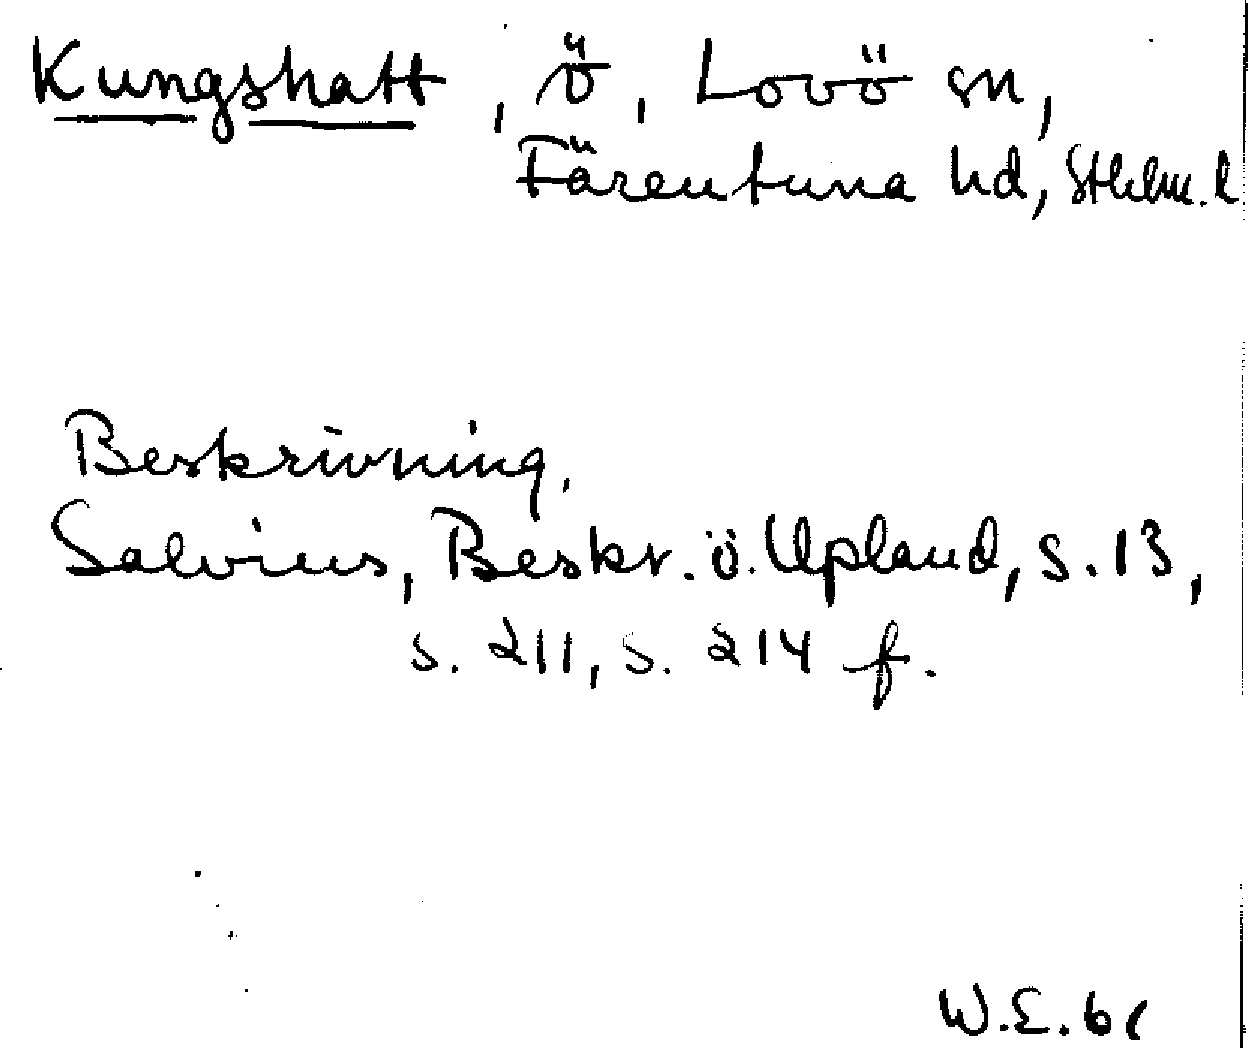 Kungshatt, ö, Lovö sn,
Färentuna hd, Sthlm. l
Beskrivning.
Salvius, Beskr. ö. Upland, s. 13,
s. 211, s. 214 f.
W.E. 61